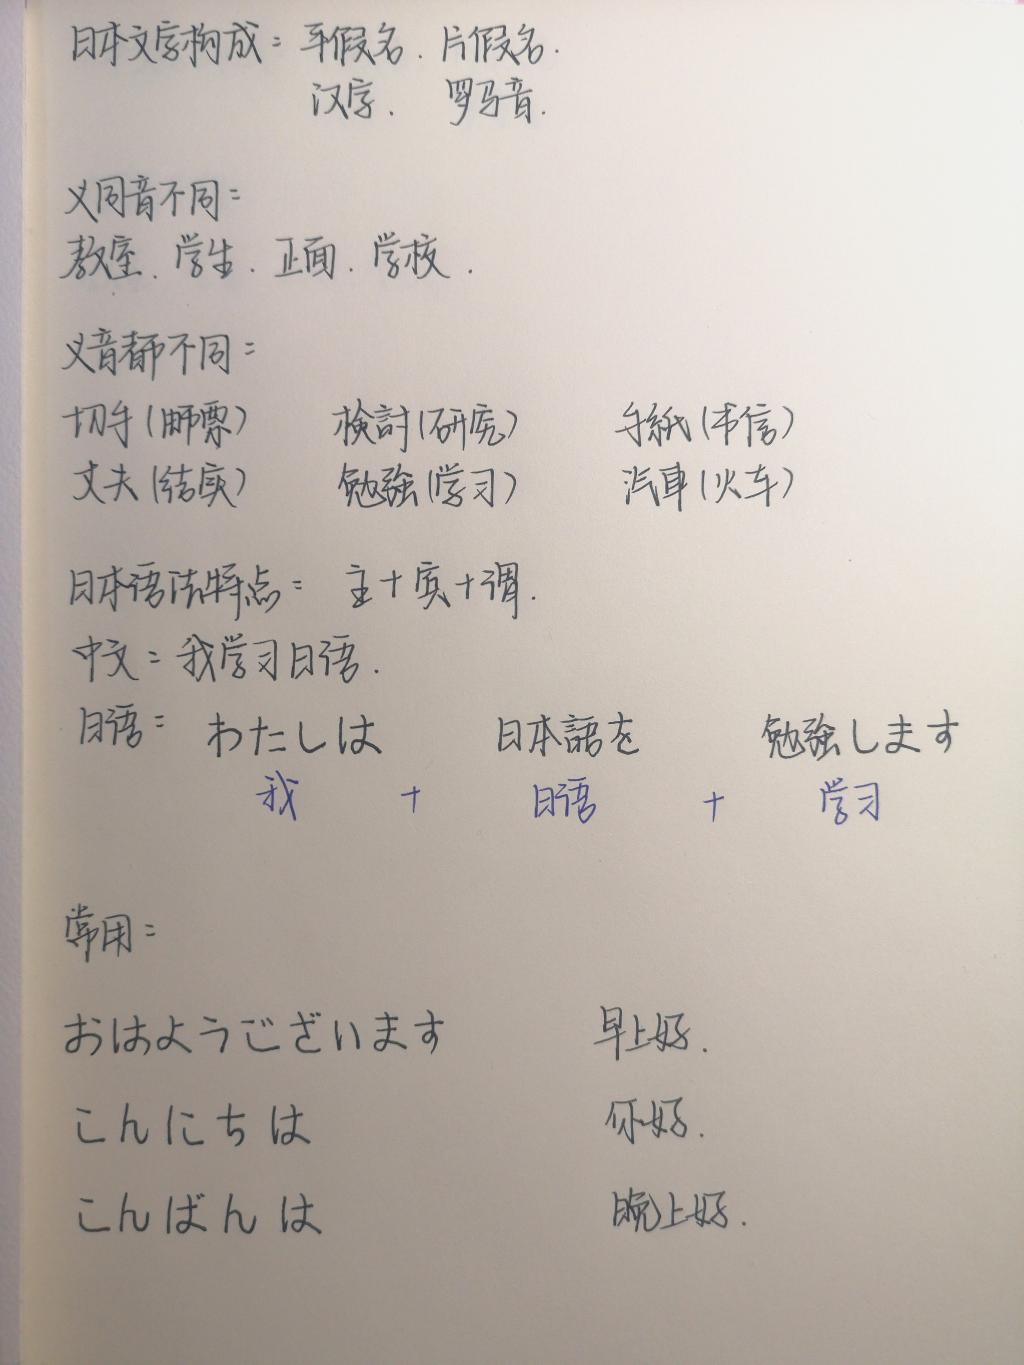 日本文字构成: 平假名. 片假名.
汉字. 罗马音.
义同音不同:
教室. 学生. 正面. 学校.
义音都不同:
切手(邮票) 検討(研究) 手紙(书信)
丈夫(结实) 勉強(学习) 汽車(火车)
日本语法特点: 主+宾+谓.
中文: 我学习日语.
日语: わたしは 日本語を 勉強します
我 + 日语 + 学习
常用:
おはようございます 早上好.
こんにちは 你好.
こんばんは 晚上好.